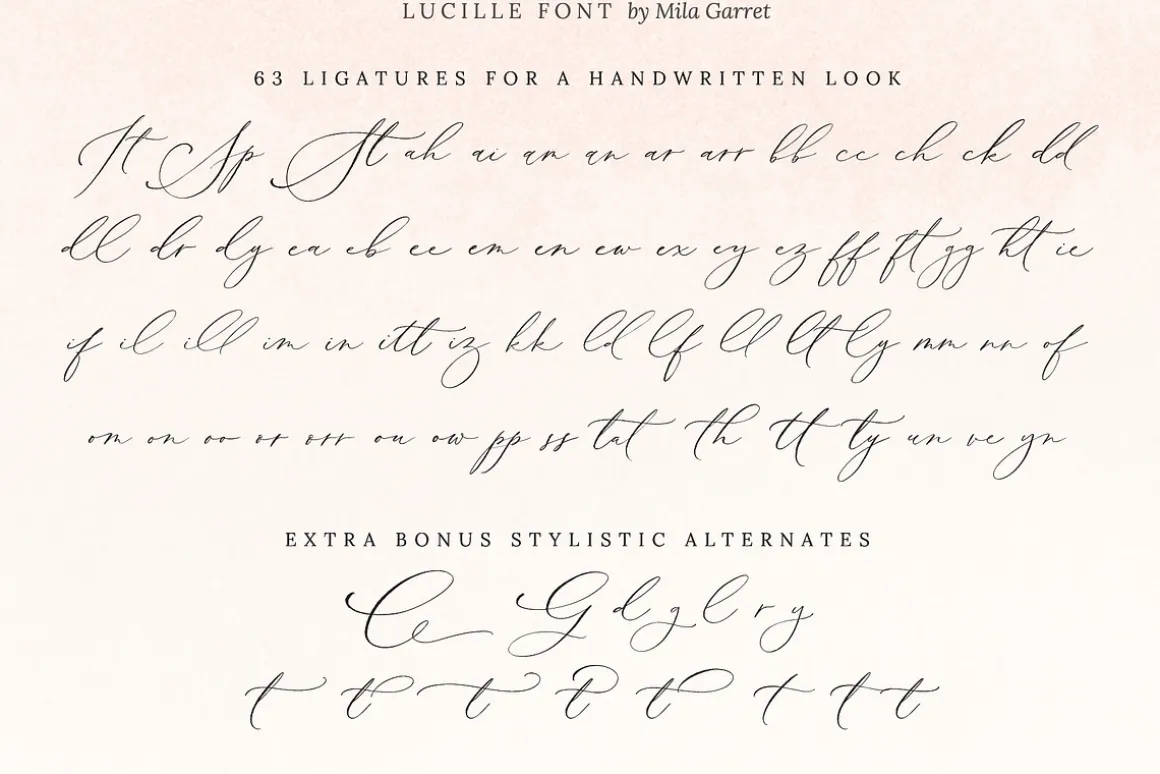 LUCILLE FONT by Mila Garret
63 LIGATURES FOR A HANDWRITTEN LOOK
It Sp St ah ai am an ar arr bb cc ch ck dd
dl dr dy ea eb ee em en ew ex ey ez ff ft gg ht ie
if il ill im in itt iz kk ld lf ll lt ly mm nn of
om on oo or orr ou ow pp ss tat th tt ty un ve yn
EXTRA BONUS STYLISTIC ALTERNATES
C G d g l r y
t t t t t t t t